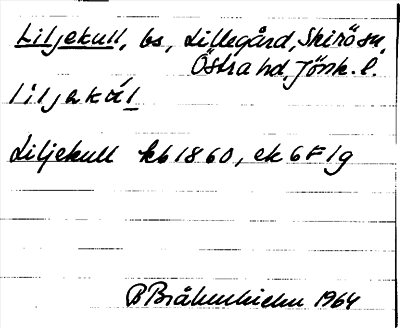 Liljekull, bs, Lillegård, Skirö sn,
Östra hd, Jönk. l.
Liljekull kb 1860, ek 6F1g
1964